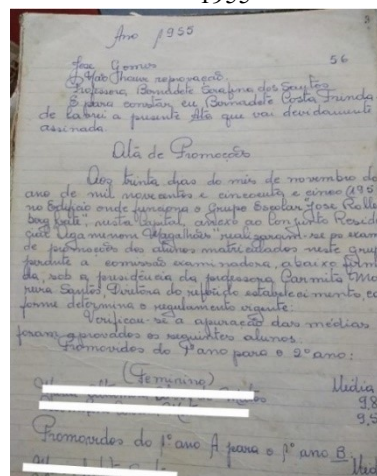 1955
3
Ano 1955
Jose Gomes 56
Não houve reprovação.
Professora Bernadete Serafina dos Santos
E para constar, eu Bernadete Costa Trinda
de lavrei a presente Ata que vai devidamente
assinada.
Atá de Promoções
Aos trinta dias do mês de novembro do
ano de mil novecentos e cincoenta e cinco (195
no Edificio onde funciona o Grupo Escolar "Jose Rolle
nesta Capital, anexo ao Conjunto Resid
Magalhães" realizaram-se os exam
de promoções dos alunos matriculados neste Grup
perante a comissão examinadora, abaixo firma
da, sob a presidência da professora Carmita
Santos Diretora do referido estabelecimento, co
forme determina o regulamento vigente.
Verificou-se a apuração das médias
foram aprovados os seguintes alunos.
Promovidos do 1º ano para o 2º ano:
(Feminino)
Média
9,8
9,5
Promovidos do 1º ano A para o 1º ano B.